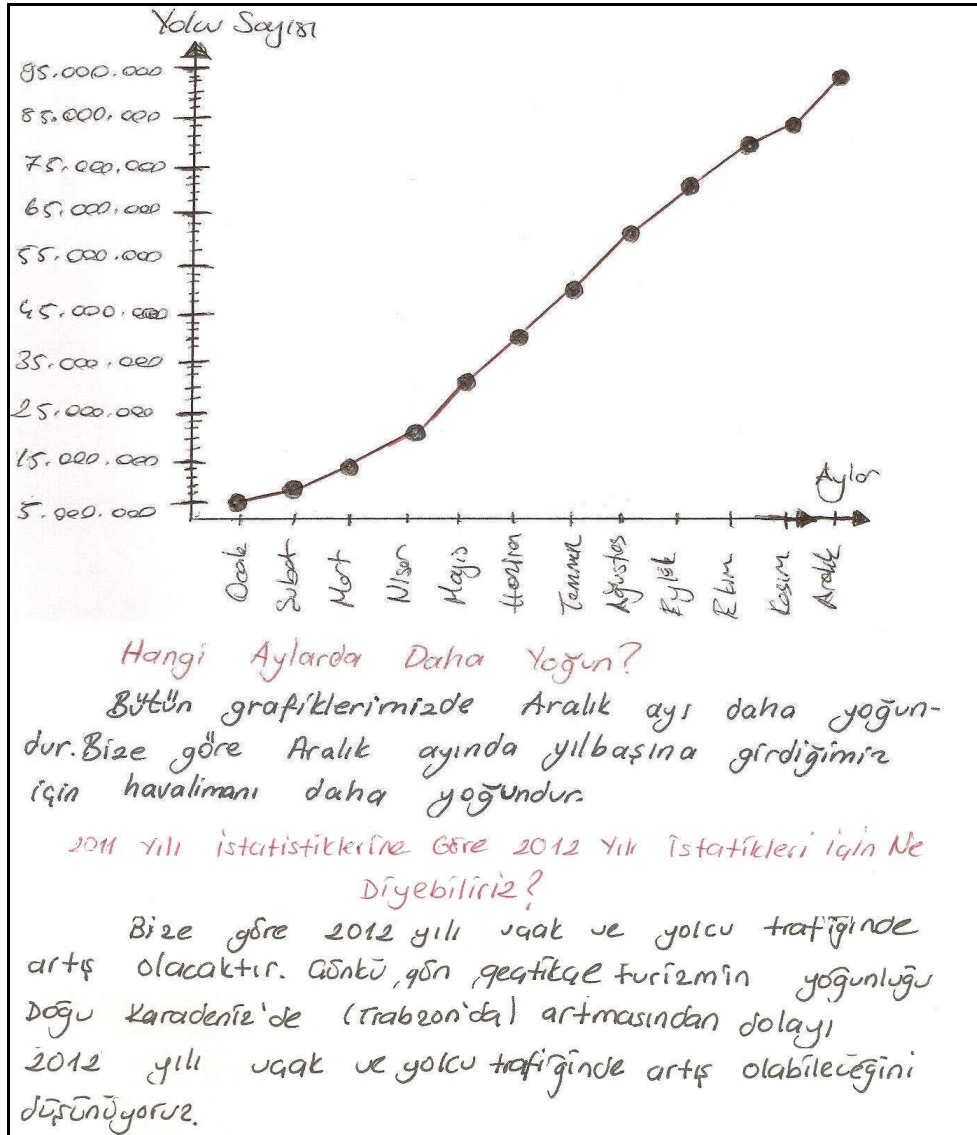 Yolcu Sayısı
95.000.000
85.000.000
75.000.000
65.000.000
55.000.000
45.000.000
35.000.000
25.000.000
15.000.000
5.000.000
Aylar
Ocak
Şubat
Mart
Nisan
Mayıs
Haziran
Temmuz
Ağustos
Eylül
Ekim
Kasım
Aralık
Hangi Aylarda Daha Yoğun?
Bütün grafiklerimizde Aralık ayı daha yoğun-
dur. Bize göre Aralık ayında yılbaşına girdiğimiz
için havalimanı daha yoğundur.
2011 Yılı istatistiklerine Göre 2012 Yılı İstatikleri için Ne
Diyebiliriz?
Bize göre 2012 yılı uçak ve yolcu trafiğinde
artış olacaktır. Çünkü, gün geçtikçe turizmin yoğunluğu
Doğu Karadeniz'de (Trabzon'da) artmasından dolayı
2012 yılı uçak ve yolcu trafiğinde artış olabileceğini
düşünüyoruz.